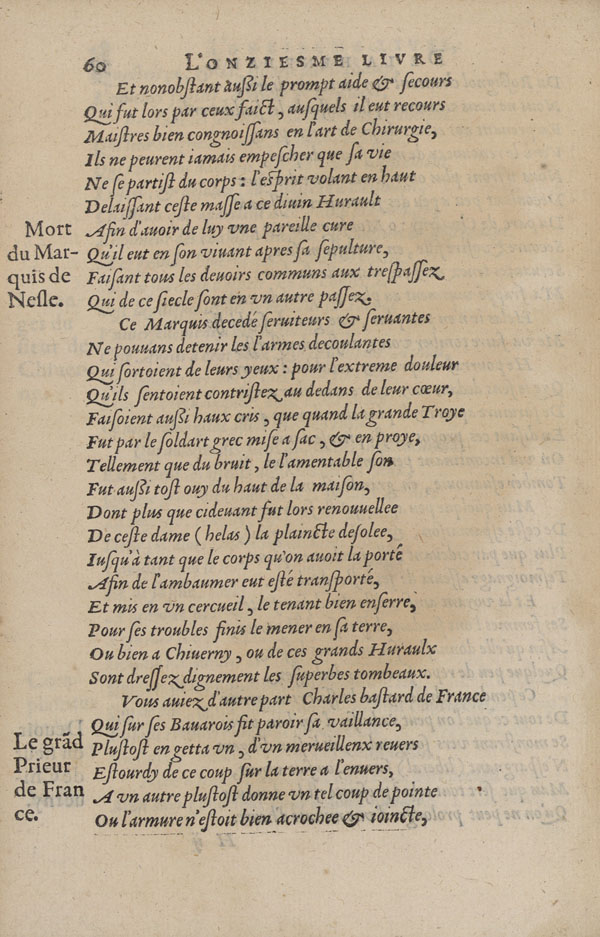 60 L'ONZIESME LIVRE
Et nonobstant aussi le prompt aide & secours
Qui fut lors par ceux faict, ausquels il eut recours
Maistres bien congnoissans en l'art de Chirurgie,
Ils ne peurent iamais empescher que sa vie
Ne se partist du corps : l'esprit volant en haut
Delaissant ceste masse a ce diuin Hurault
Afin d'auoir de luy vne pareille cure
Qu'il eut en son viuant apres sa sepulture,
Faisant tous les deuoirs communs aux trespassez
Qui de ce siecle sont en vn autre passez.
Mort
du Mar-
quis de
Nesle.
Ce Marquis decedé seruiteurs & seruantes
Ne pouuans detenir les l'armes decoulantes
Qui sortoient de leurs yeux : pour l'extreme douleur
Qu'ils sentoient contristez au dedans de leur cœur,
Faisoient aussi haux cris, que quand la grande Troye
Fut par le soldart grec mise a sac, & en proye,
Tellement que du bruit, le l'amentable son
Fut aussi tost ouy du haut de la maison,
Dont plus que cideuant fut lors renouuellee
De ceste dame (helas) la plaincte desolee,
Iusqu'à tant que le corps qu'on auoit la porté
Afin de l'ambaumer eut esté transporté,
Et mis en vn cercueil, le tenant bien enserre,
Pour ses troubles finis le mener en sa terre,
Ou bien a Chiuerny, ou de ces grands Huraulx
Sont dressez dignement les superbes tombeaux.
Vous auiez d'autre part Charles bastard de France
Qui sur ses Bauarois fit paroir sa vaillance,
Plustost en getta vn, d'vn merueillenx reuers
Estourdy de ce coup sur la terre a l'enuers,
A vn autre plustost donne vn tel coup de pointe
Ou l'armure n'estoit bien acrochee & iointe,
Le grãd
Prieur
de Fran
ce.